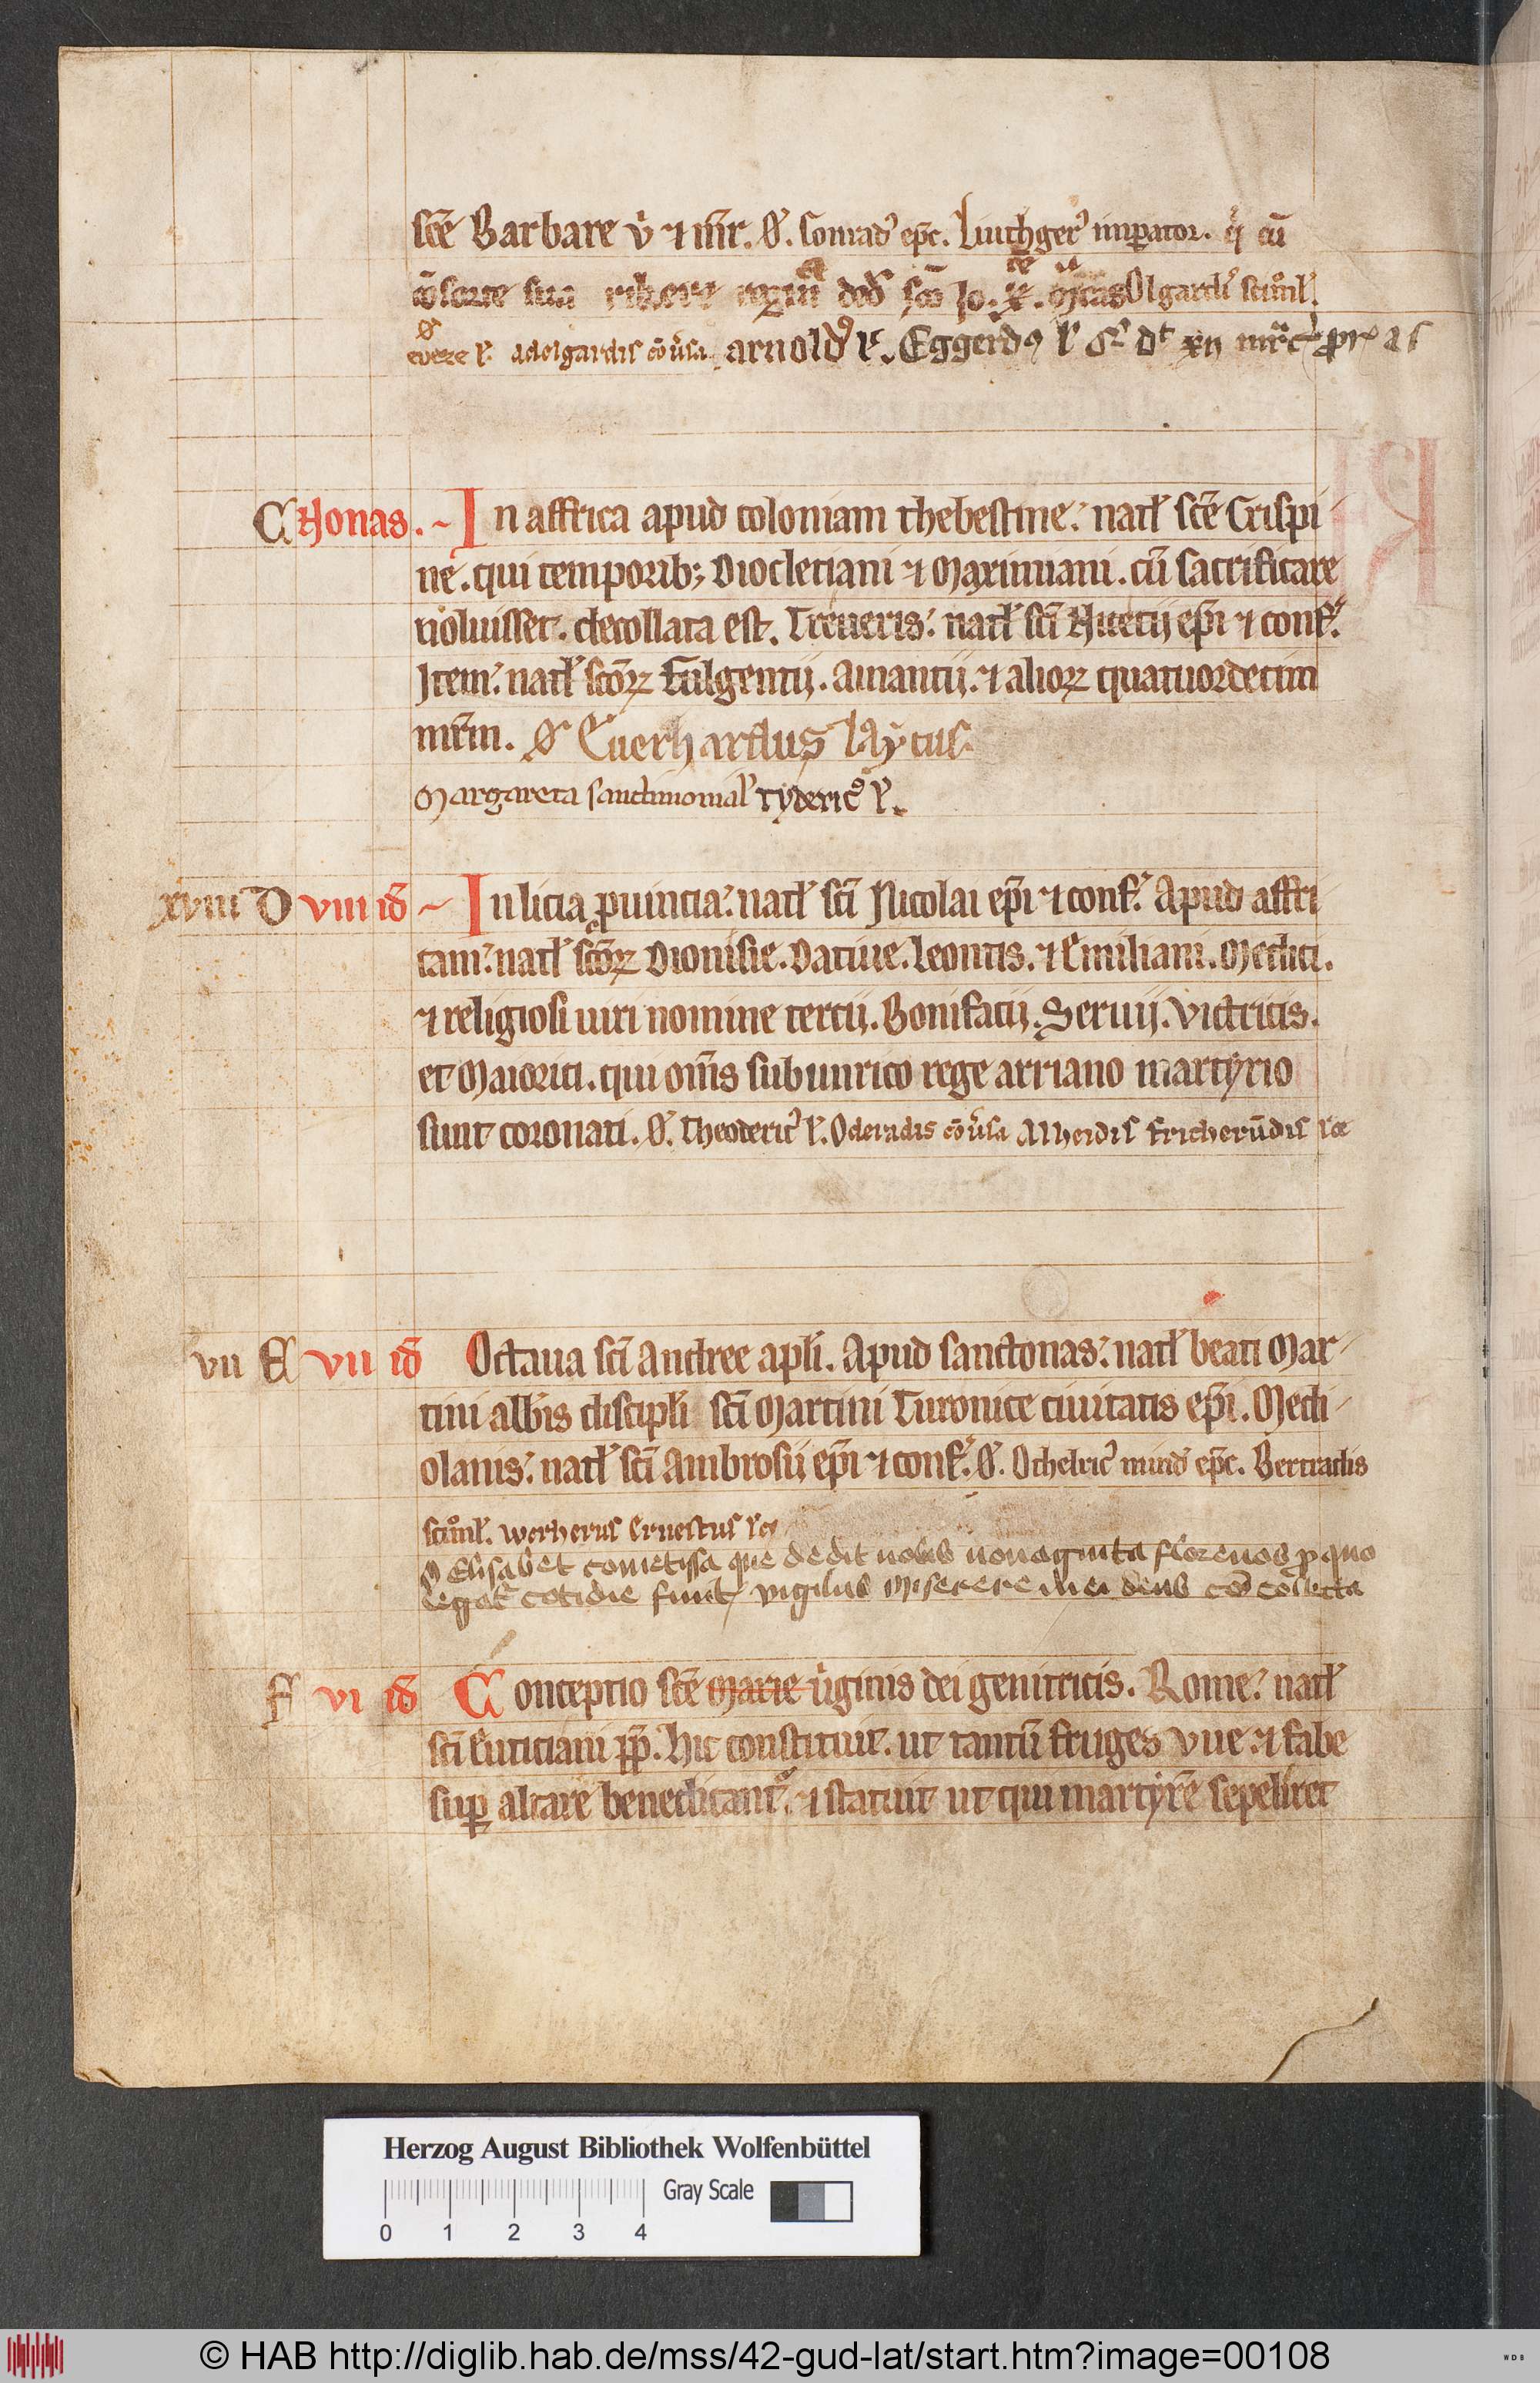 scē Barbare v̓ ⁊ mr̄. O᷎. Conrad᷒ ep̄c. Liuthger᷒ imperator. q̓ cū
cōsorte sua
euere l᷎. Adelgardis cōu̓sa. arnold᷒ l᷎. Eggerdꝰ l᷎
C Nonas. In affrica apud coloniam thebestine: natł scē Crispi
ne. qui temporib; Diocleciani ⁊ Maximiani. cū sacrificare
noluisset. decollata est. Treueris: natł scī Nicetij ep̄i ⁊ conf̓.
Item: natł scōrꝝ Fulgentij. Amantij. ⁊ aliorꝝ quatuordecim
mr̄m. O᷎ Euerhardus laycus.
Margareta sanctimonial᷎ tyderic᷒ l᷎.
xviii D viii id̄ In licia ꝓuincia: natł scī Nicolai ep̄i ⁊ conf̓. Apud affri
cam: natł scōrꝝ Dionisie. Datiue. Leontis. ⁊ Emiliani. Medici.
⁊ religiosi uiri nomine tercij. Bonifacij. Seruij. Victricis.
et Maiorici. qui om̄s sub unrico rege arriano martyrio
sunt coronati. O᷎. Theoderic᷒ l᷎. Oderadis cōu̓sa Alheidis Fricherūdis lce
vii E vii id̄ Octaua scī Andree apłi. Apud sanctonas: natł beati Mar
tini abb̄is discipłi scī Martini Turonice ciuitatis ep̄i. Medi
olanis: natł scī Ambrosij ep̄i ⁊ conf̓. O᷎. Othelric᷒ mind̓ ep̄c. Bertradis
scīmł. Werherus Ernestus lci
O Elisabet cometissa que dedit nobis nonaginta florenos ꝓ quo
legat᷑ cotidie sunt vigilus Miserere mei deus cō collecta
F vi id̄ Conceptio scē Marie u̓ginis dei genitricis. Rome: natł
scī Euticiani pp̄. Hic constituit. ut tantū fruges vue ⁊ fabe
suꝑ altare benedicant᷑. ⁊ statuit ut qui martyrē sepeliret
Herzog August Bibliothek Wolfenbüttel
0 1 2 3 4 Gray Scale
© HAB http://diglib.hab.de/mss/42-gud-lat/start.htm?image=00108